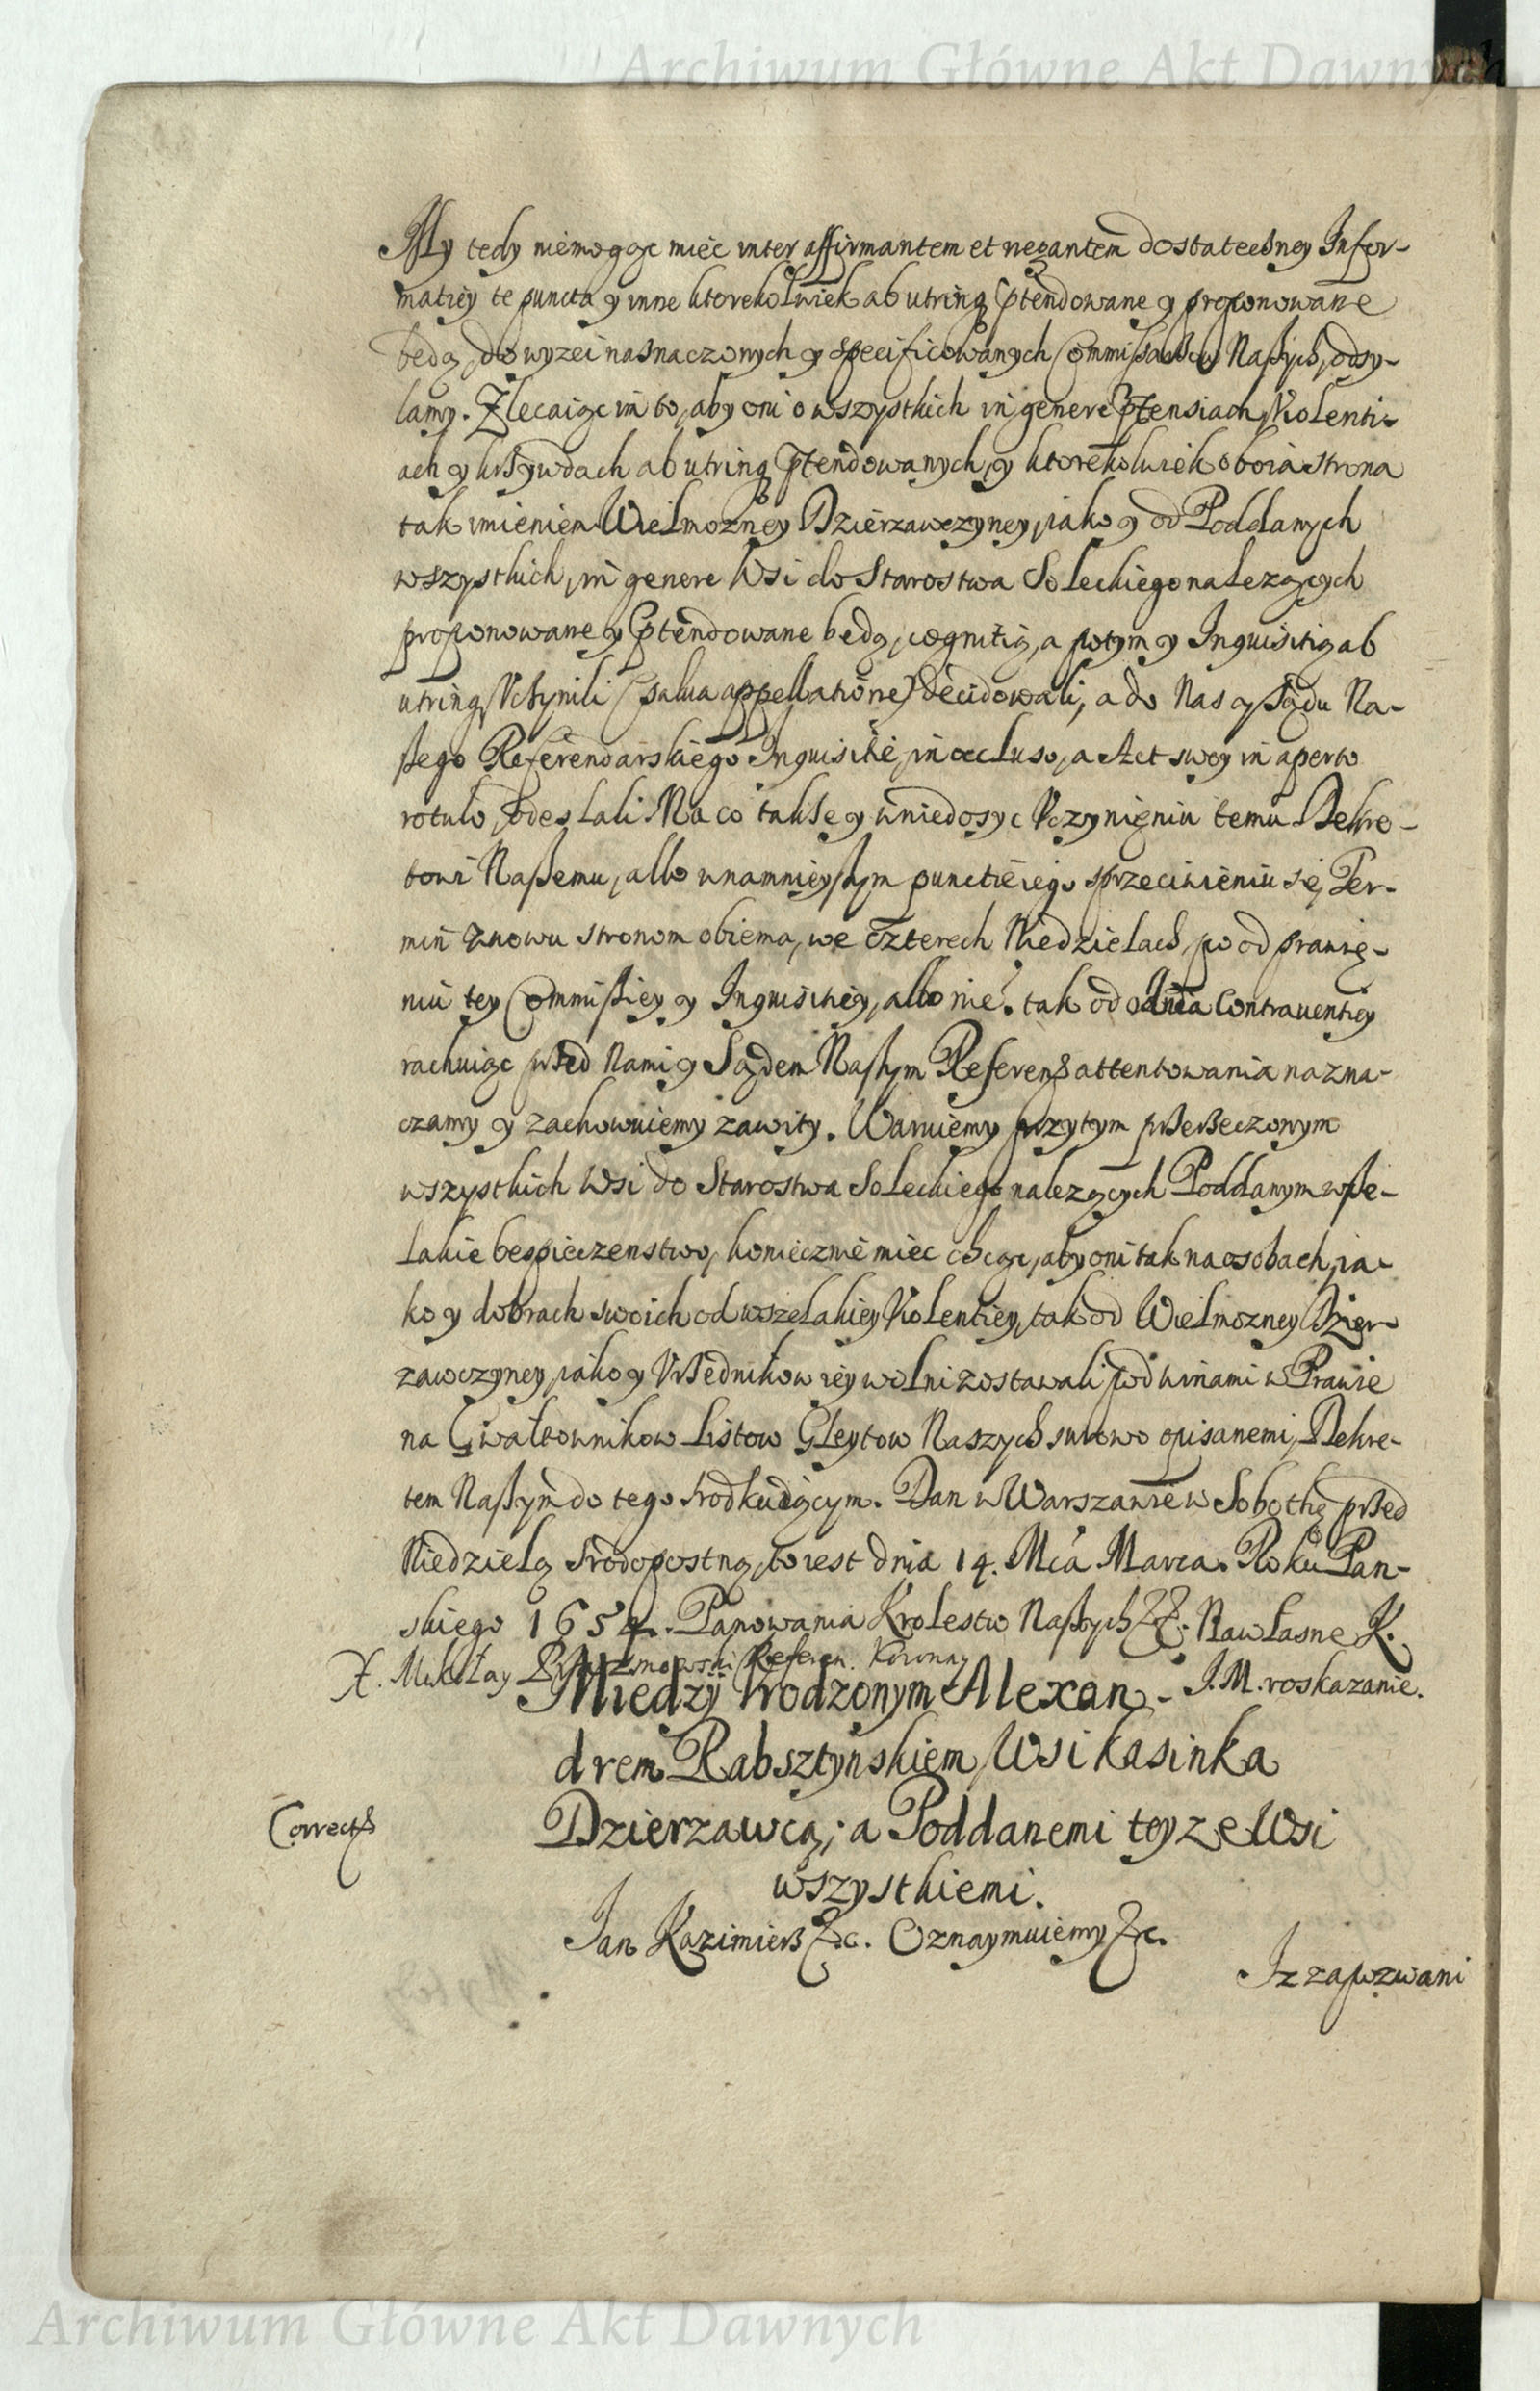 Archiwum Główne Akt Dawnych
My tedy niemogąc mieć inter affirmantem et negantem dostateczney Infor-
matiey te puncta y inne ktorekolwiek ab utrinq ptendowane y proponowane
będą, do wyżei naznaczonych y specificowanych Commissarzow Naszych, odsy-
łamy. Zlecaiąc im to, aby oni o wszystkich in genere Ptensiach, Violenti-
ach y krzywdach ab utrinq ptendowanych, y ktorekolwiek oboia strona
tak imieniem Wielmozney Dzierzawczyney, iako y od Poddanych
wszystkich, in genere Wsi do Starostwa Soleckiego nalezących
proponowane y ptendowane będą, cognitią, a potym y Inquisitią ab
utrinq Vczynili (salua appellatione) decidowali, a do Nas y Sądu Na-
szego Referendarskiego Inquisitie, in occluso, a Act swoy in aperto
rotulo, odesłali. Na co takze y w niedosyc Vczynieniu temu Dekre-
towi Naszemu, albo w namnieyszym punctie iego sprzeciwieniu się, Ter-
min znowu stronom obiema, we czterech Niedzielach, po odprawie-
niu tey Commissiey y Inquisitiey, albo nie, tak od dnia Contrauentiey
rachuiąc przed Nami y Sądem Naszym Referen attentowania nazna-
czamy y zachowuiemy zawity. Waruiemy przytym przerzeczonym
wszystkich Wsi do Starostwa Soleckiego nalezących Poddanym wsze-
lakie bespieczenstwo, koniecznie miec chcąc, aby oni tak na osobach, ia-
ko y dobrach swoich od wszelakiey Violentiey, tak od Wielmozney Dzier-
zawczyney, iako y Vrzednikow iey wolni zostawali, pod winami w Prawie
na Gwałtownikow Listow Gleytow Naszych surowo opisanemi, Dekre-
tem Naszym do tego srodkuiącym. Dan w Warszawie w Sobothę przed
Niedzielą Srodopostną, to iest dnia 14. Mca Marca. Roku Pan-
skiego 1654. Panowania Krolestw Naszych &. Na własne K.
J. M. roskazanie.
X. Mikołay Prazmowski Referen. Koronny
Miedzy Vrodzonym Alexan-
drem Rabsztynskiem, Wsi Kasinka
Dzierzawcą; a Poddanemi teyze Wsi
wszystkiemi.
Correct
Jan Kazimierz &c. Oznaymuiemy &c.
Iz zapozwani
Archiwum Główne Akt Dawnych